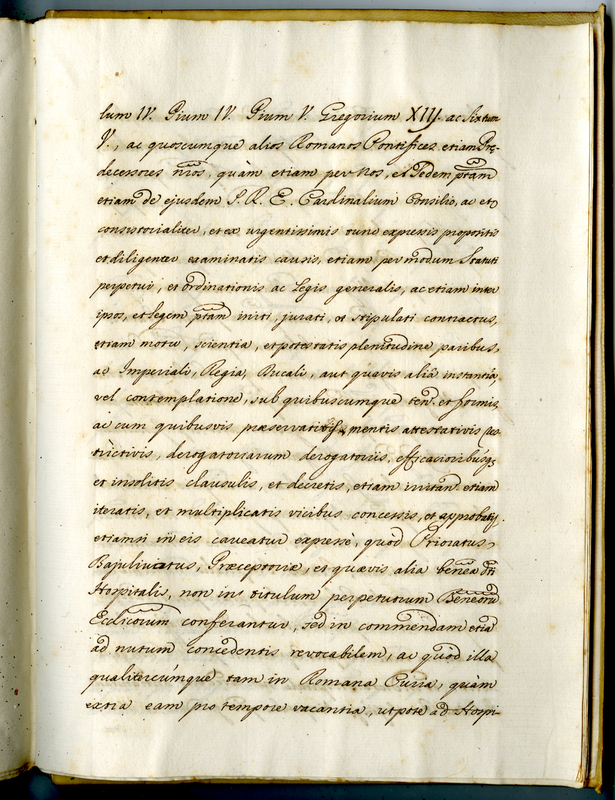 lum IV. Pium IV. Pium V. Gregorium XIIJ. ac Sixtum
V., ac quoscunque alios Romanos Pontifices etiam Prę-
decessores nr̃os, quàm etiam per nos, et Sedem pt̃am
etiam de ejusdem S. R. E. Cardinalium Consilio, ac et
consistorialiter, et ex urgentissimis tunc expressis propositis
et diligenter examinatis causis, etiam per modum Statuti
perpetui, et ordinationis ac Legis generalis, ac etiam inter
ipsos, et legem pt̃am initi, jurati, et stipulati contractus,
etiam motu, scientia, et potestatis plenitudine paribus,
ac Imperiali, Regia, Ducali, aut quavis alia instantia,
vel contemplatione, sub quibuscumque ten. et formis,
ac cum quibusvis præservativis, mentis attestativis res-
trictivis, derogatoriarum derogatoriis, efficasioribusq;
et insolitis clausulis, et decretis, etiam irritan. etiam
iteratis, et multiplicatis vicibus concessis, et approbatis,
etiamsi in eis caveatur expresse, quod Prioratus,
Bajulivatus, Præceptoriæ, et quævis alia benea dt̃i
Hospitalis, non ins titulum perpetuum Beneorũ
Ecclicorum conferantur, sed in commendam etiã
ad nutum concedentis revocabilem, ac quod illa
qualitercúnque tam in Romana Curia, quàm
extra eam pro tempore vacantia, utpote ad Hospi-